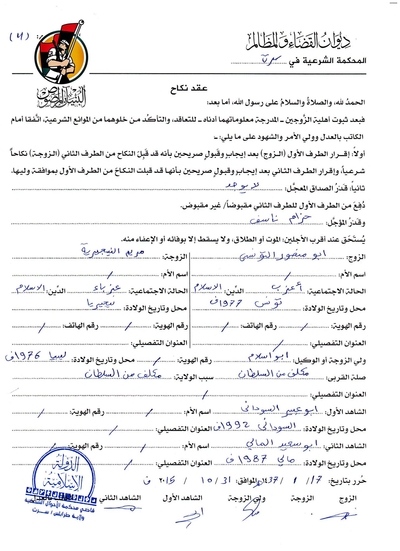 ديوان القضاء والمظالم
المحكمة الشرعية في سرت
(4)
البنيان المرصوص
عقد نكاح
الحمدُ لله، والصلاةُ والسلامُ على رسول الله، أما بعد:
فبعد ثبوت أهلية الزوجين - المدرجة معلوماتهما أدناه - للتعاقد، والتأكد من خلوهما من الموانع الشرعية، اتفقا أمام
الكاتب بالعدل وولي الأمر والشهود على ما يلي:
أولاً: إقرار الطرف الأول (الزوج) بعد إيجاب وقبول صريحين بأنه قد قبل النكاح من الطرف الثاني (الزوجة) نكاحاً
شرعياً، وإقرار الطرف الثاني بعد إيجاب وقبول صريحين بأنها قد قبلت النكاح من الطرف الأول بموافقة وليها.
ثانياً: قدر الصداق المعجل: لا يوجد
دُفِع من الطرف الأول للطرف الثاني مقبوضاً/ غير مقبوض.
وقدر المؤجل: حزام ناسف
يُستحق عند أقرب الأجلين: الموت أو الطلاق، ولا يسقط إلا بوفائه أو الإعفاء منه.
الزوج: ابو منصور التونسي الزوجة: مريم النيجيرية
اسم الأم: / اسم الأم: /
الحالة الاجتماعية: أعزب الدين: الاسلام الحالة الاجتماعية: عزباء الدين: الاسلام
محل وتاريخ الولادة: تونس 1977ف محل وتاريخ الولادة: نيجيريا
رقم الهوية: / رقم الهاتف: / رقم الهوية: / رقم الهاتف: /
العنوان التفصيلي: / العنوان التفصيلي: /
ولي الزوجة أو الوكيل: ابو اسلام رقم الهوية: / محل وتاريخ الولادة: ليبيا 1976ف
صلة القربى: مكلف من السلطان سبب الولاية: مكلف من السلطان
العنوان التفصيلي: /
الشاهد الأول: ابو عمير السوداني اسم الأم: / رقم الهوية: /
محل وتاريخ الولادة: السودان 1992ف العنوان التفصيلي: /
الشاهد الثاني: ابو سعيد المالي اسم الأم: / رقم الهوية: /
محل وتاريخ الولادة: مالي 1987ف العنوان التفصيلي: /
حرر بتاريخ: 17 / 1 / 1437 الموافق: 31 / 10 / 2015 ف
الزوج الزوجة ولي الزوجة الشاهد الأول الشاهد الثاني
الدولة الإسلامية
قاضي محكمة الأحوال الشخصية
ولاية طرابلس / سرت